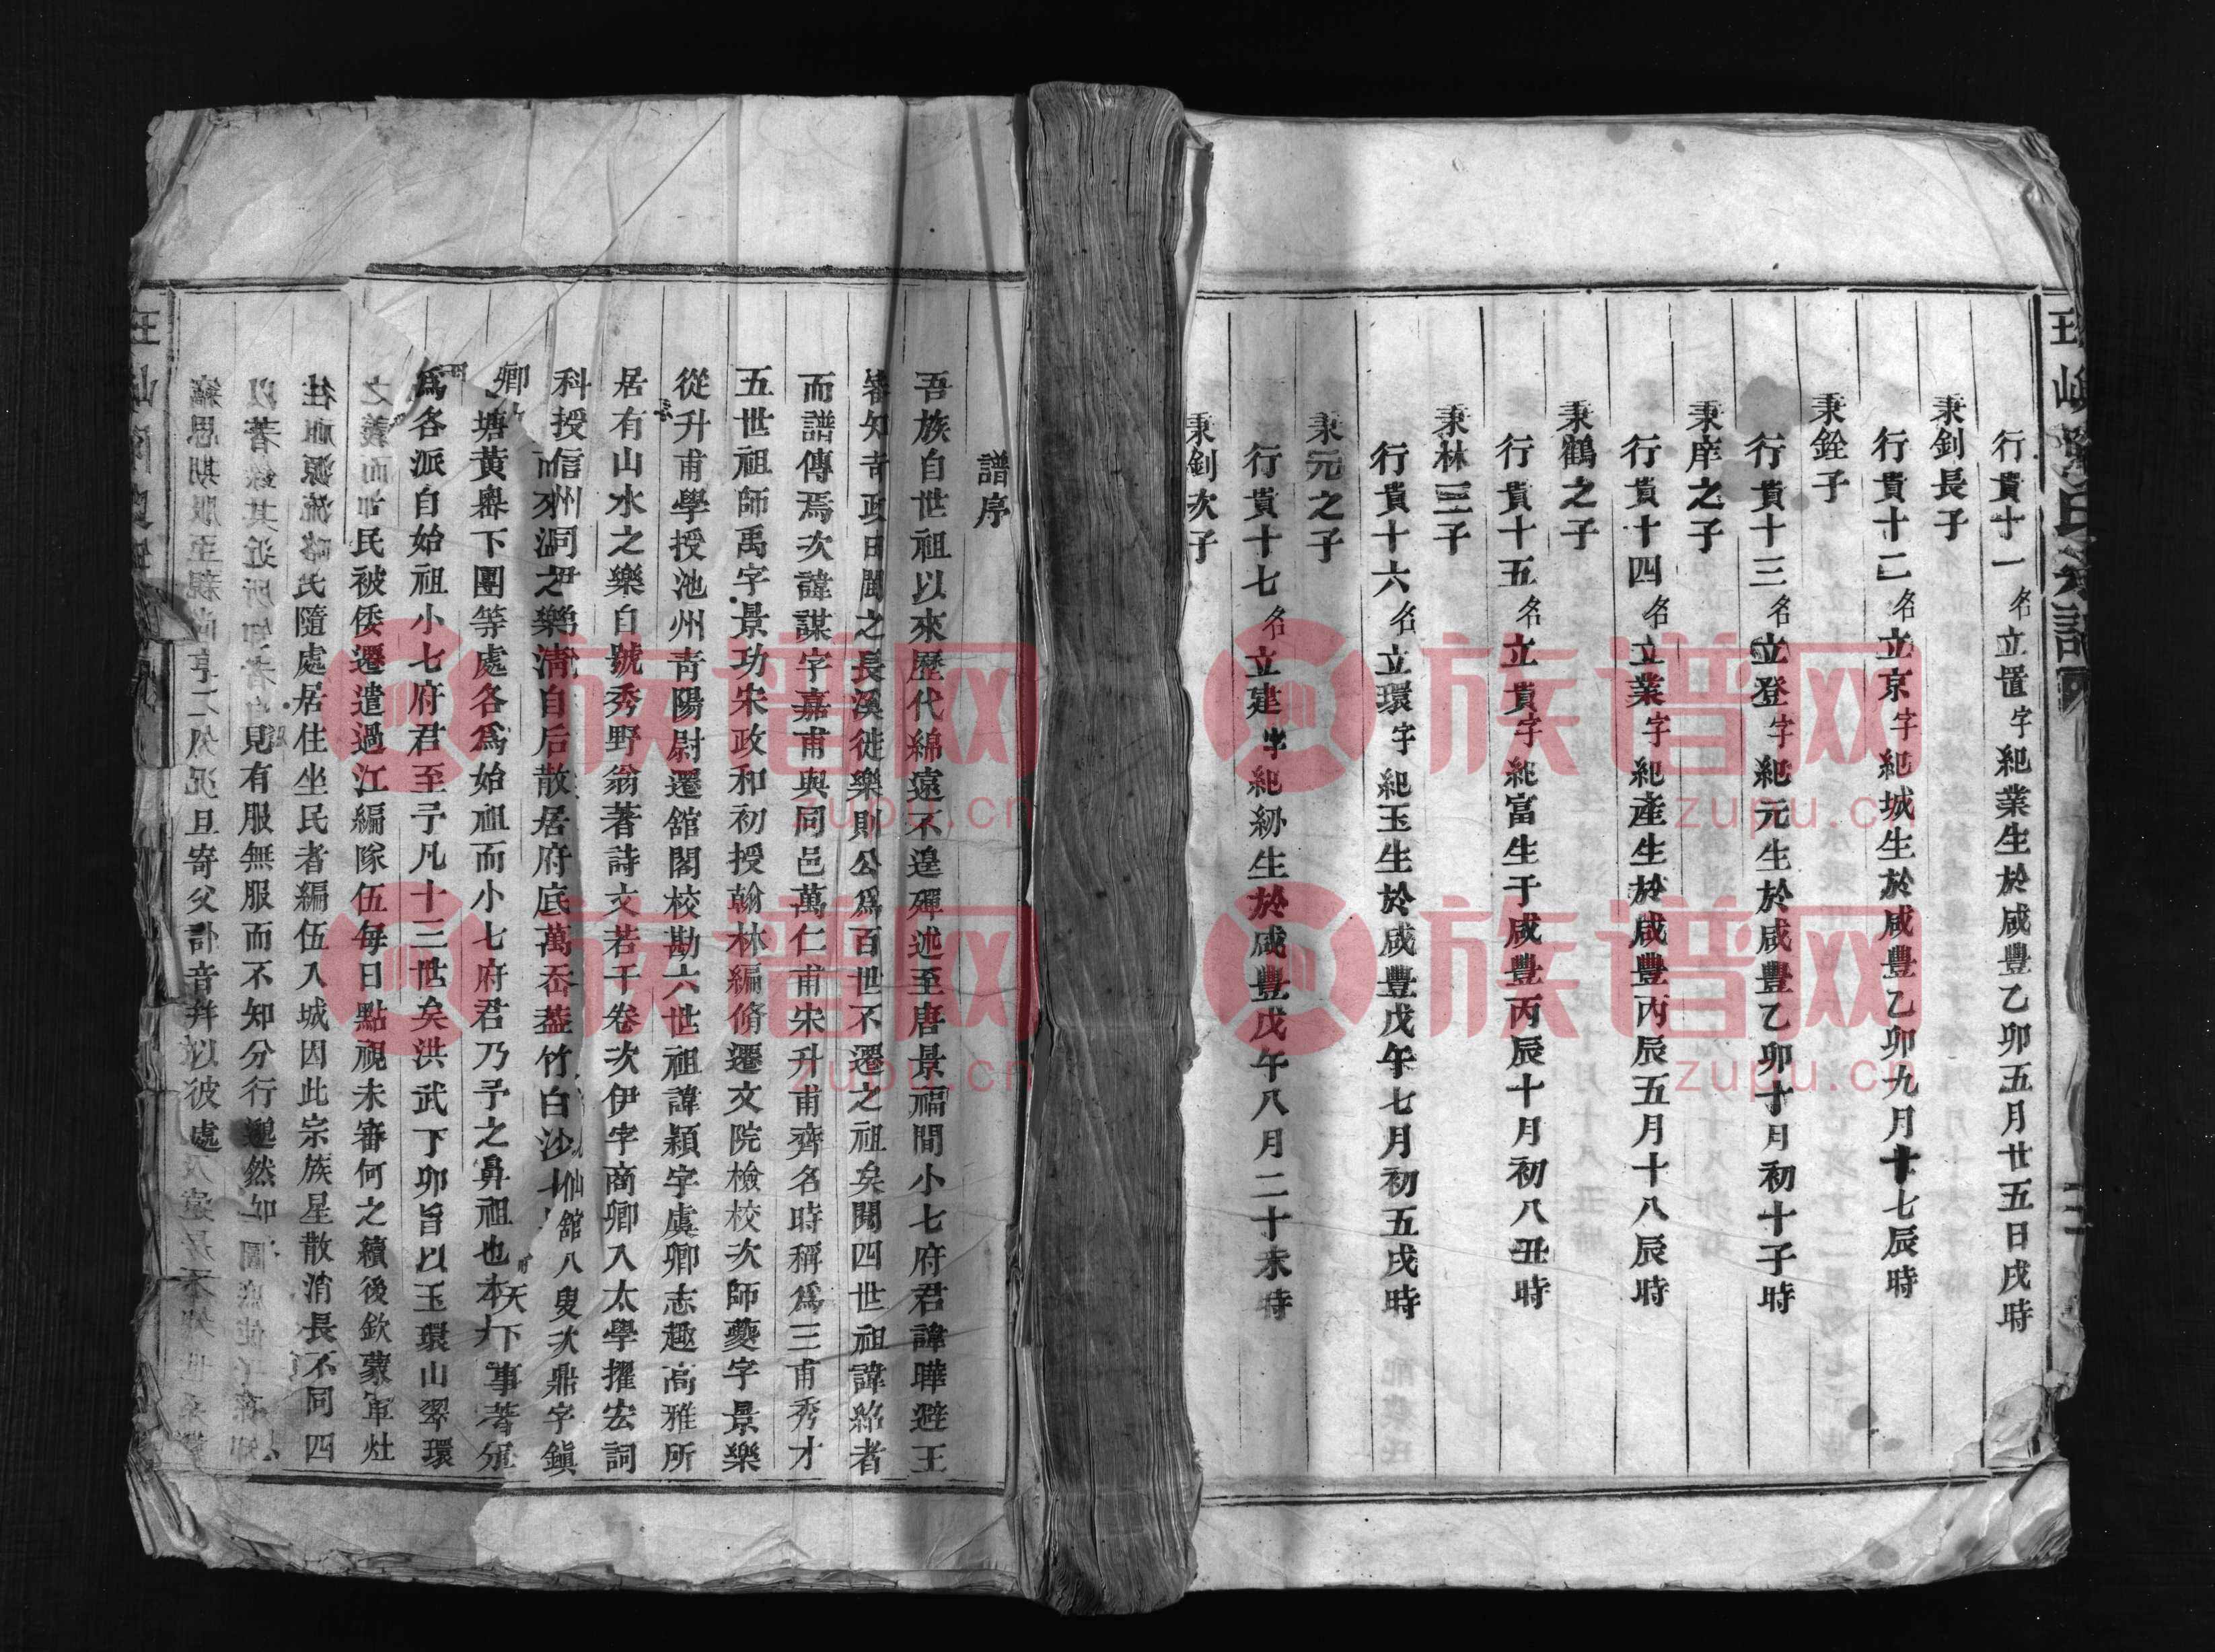 行貲十一名立置字紀業生於咸豐乙卯五月廿五日戌時
秉釗長子
行貲十二名立京字紀城生於咸豐乙卯九月十七辰時
秉銓子
行貲十三名立登字紀元生於咸豐乙卯十月初十子時
秉庠之子
行貲十四名立業字紀產生於咸豐丙辰五月十八辰時
秉鶴之子
行貲十五名立貴字紀富生于咸豐丙辰十月初八丑時
秉林三子
行貲十六名立環字紀玉生於咸豐戊午七月初五戌時
秉元之子
行貲十七名立建字紀紛生於咸豐戊午八月二十未時
秉釗次子
譜序
吾族自世祖以來歷代綿遠不遑殫述至唐景福間小七府君諱曄避王
審知苛政由閩之長溪徙樂則公為百世不遷之祖矣閱四世祖諱紹者
而譜傳焉次諱謀字嘉甫與同邑萬仁甫宋升甫齊名時稱為三甫秀才
五世祖師禹字景功宋政和初授翰林編脩遷文院檢校次師夔字景樂
從升甫學授池州青陽尉遷舘閣校勘六世祖諱穎字虞卿志趣高雅所
居有山水之樂自號秀野翁著詩文若干卷次伊字商卿入太學擢宏詞
科授信州同尹 舘八叟次鼎字鎮
卿 而來溫之樂清自后散居府底萬岙蓋竹白沙 天下事著
塘黃塟下團等處各為始祖而小七府君乃予之鼻祖也
為各派自始祖小七府君至予凡十三世矣洪武丁卯旨以玉環山翠環
之義而 民被倭遷遣過江編隊伍每日點視未審何之續後欽蒙軍灶
民隨處居住坐民者編伍入城因此宗族星散消長不同四
見有服無服而不知分行邈然
且寄父訃音并以彼處